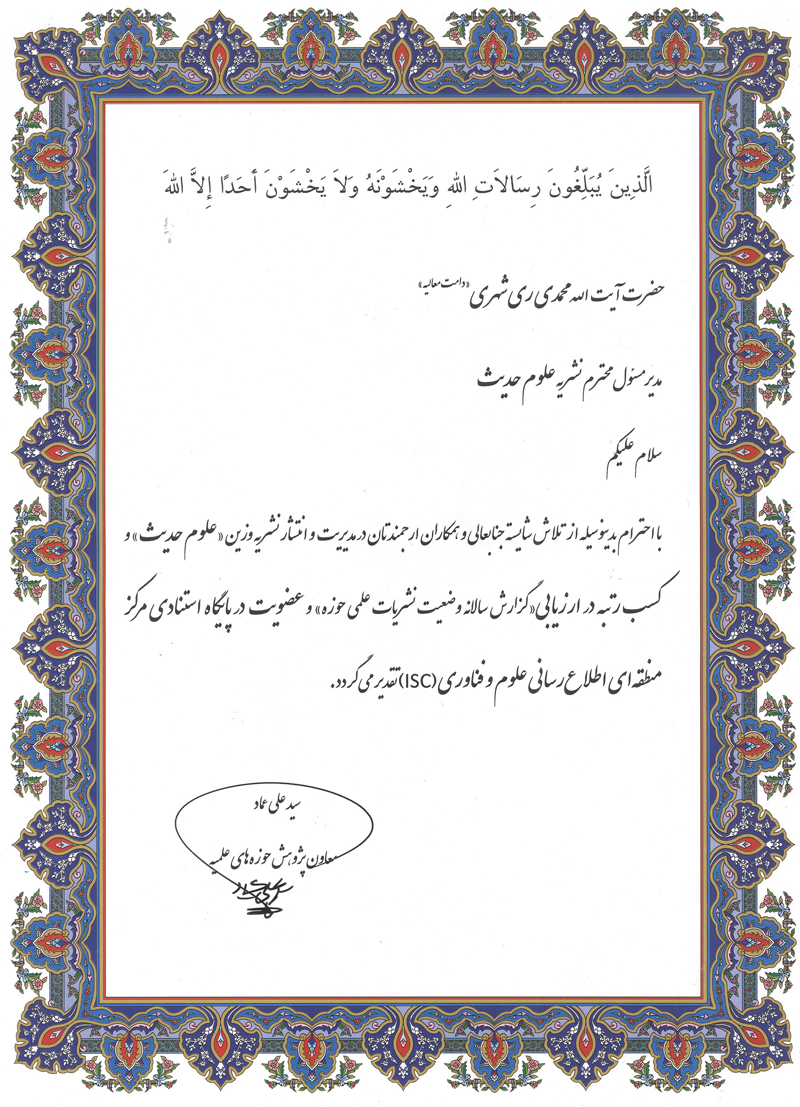 الَّذِينَ يُبَلِّغُونَ رِسَالاَتِ اللهِ وَيَخْشَوْنَهُ وَلاَ يَخْشَوْنَ أَحَدًا إِلاَّ اللهَ
حضرت آیت الله محمدی ری شهری «دامت معالیه»
مدیر مسئول محترم نشریه علوم حدیث
سلام علیکم
با احترام بدینوسیله از تلاش شایسته جنابعالی و همکاران ارجمندتان در مدیریت و انتشار نشریه وزین «علوم حدیث» و
کسب رتبه در ارزیابی «گزارش سالانه وضعیت نشریات علمی حوزه» و عضویت در پایگاه استنادی مرکز
منطقه ای اطلاع رسانی علوم و فناوری (ISC) تقدیر می گردد.
سید علی عماد
معاون پژوهش حوزه های علمیه